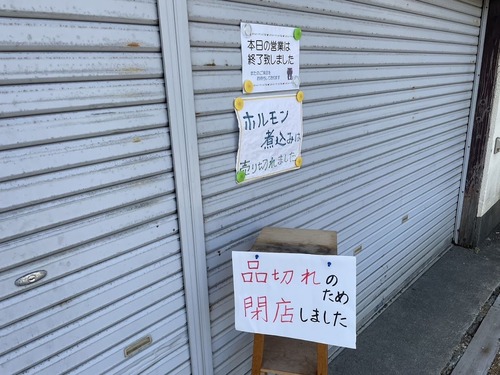 本日の営業は
終了致しました
ホルモン
煮込みは
売り切れました
品切れの
ため
閉店しました